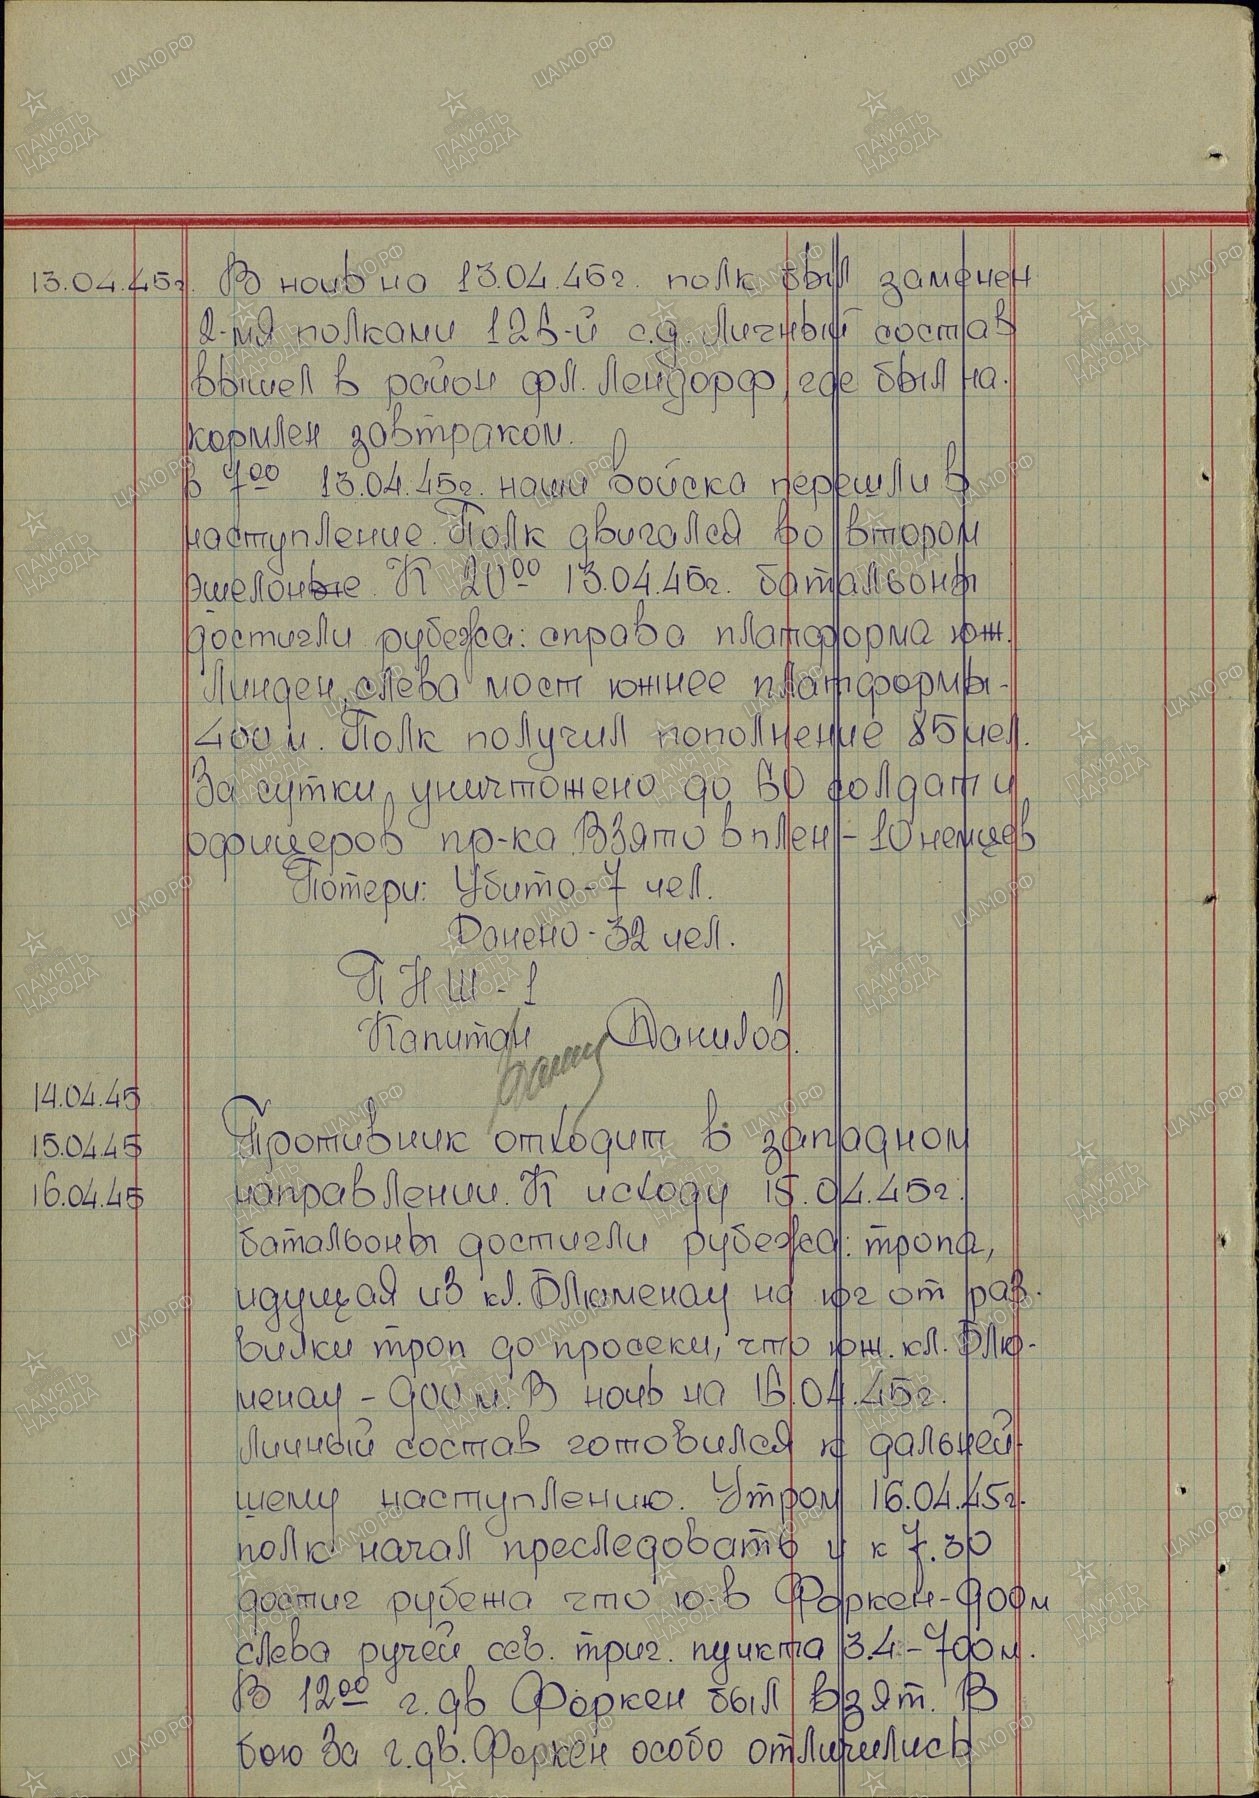 13.04.45г. В ночь на 13.04.45г. полк был заменен
2-мя полками 126-й с.д. Личный состав
вышел в район фл. Лендорф, где был на-
кормлен завтраком.
в 7⁰⁰ 13.04.45г. наши войска перешли в
наступление. Полк двигался во втором
эшелоне. К 20⁰⁰ 13.04.45г. батальоны
достигли рубежа: справа платформа юж.
Линден, слева мост южнее платформы-
400 м. Полк получил пополнение 85 чел.
За сутки уничтожено до 60 солдат и
офицеров пр-ка Взято в плен - 10 немцев
Потери: Убито - 7 чел.
Ранено - 32 чел.
ПНШ - 1
Капитан Данилов.
14.04.45
15.04.45 Противник отходит в западном
16.04.45 направлении. К исходу 15.04.45г.
батальоны достигли рубежа: тропа,
идущая из кл. Блюменау на юг от раз-
вилки троп до просеки, что юж. кл. Блю-
менау - 900 м. В ночь на 16.04.45г.
личный состав готовился к дальней-
шему наступлению. Утром 16.04.45г.
полк начал преследовать и к 7.30
достиг рубежа что ю-в Форкен-900 м
слева ручей сев. триг. пункта 3.4 - 700 м.
В 12⁰⁰ г. дв Форкен был взят. В
бою За г. дв. Форкен особо отличились
ЦАМО.РФ
ПАМЯТЬ
НАРОДА